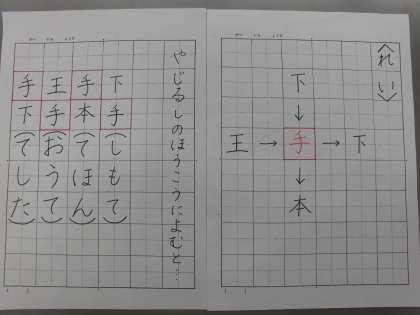 〈れい〉
下
↓
王→手→下
↓
本
やじるしのほうこうによむと…
下手(しもて)
手本(てほん)
王手(おうて)
手下(てした)